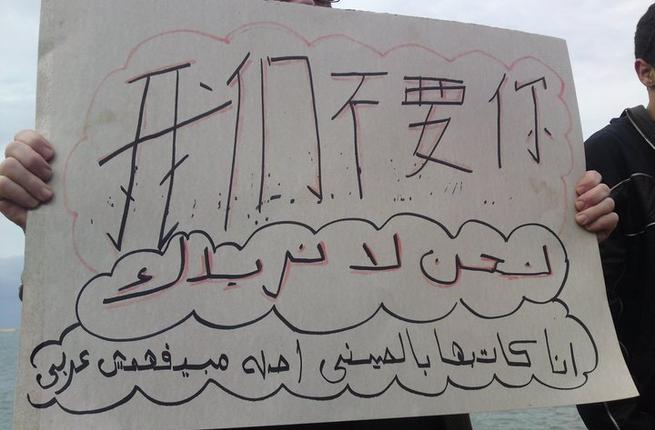 我们不要你
نحن لا نريدك
انا كاتبها بالصيني اصله مبيفهمش عربي